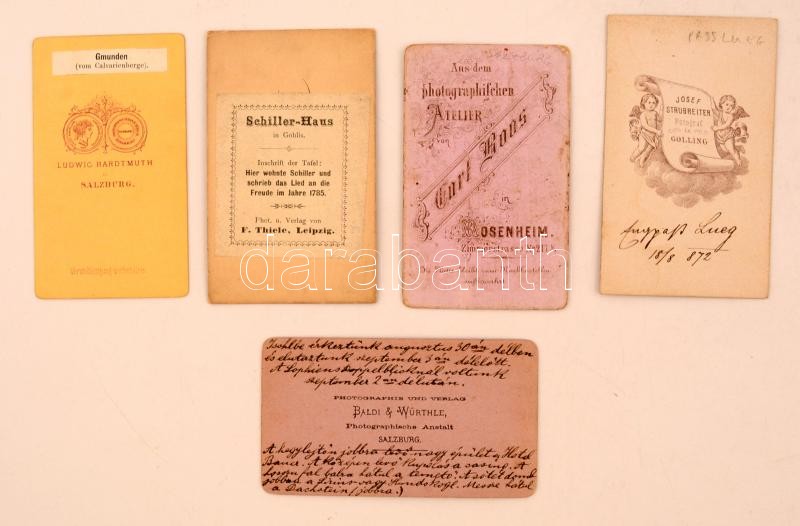 Gmunden
(vom Calvarienberge).
LUDWIG HARDTMUTH
SALZBURG.
Schiller-Haus
in Gohlis.
Inschrift der Tafel:
Hier wohnte Schiller und
schrieb das Lied an die
Freude im Jahre 1785.
Phot. u. Verlag von
F. Thiele, Leipzig.
Aus dem
photographischen
ATELIER
von
Carl Haas
in
ROSENHEIM.
PASS LUEG
JOSEF
STRUBREITER
Fotograf
GOLLING
Engpaß Lueg
18/8 872
Ischlbe érkeztünk augusztus 30án délben
és elutaztunk szeptember 3án délelőtt.
A Sophiens Doppelblicknál voltunk
szeptember 2án délután.
PHOTOGRAPHIE UND VERLAG
BALDI & WÜRTHLE,
Photographische Anstalt
SALZBURG.
A hegylejtőn jobbra levő nagy épület a Hotel
Bauer. A középen levő a
balra hátul a temető. A sötét domb
jobbra a vagy Hundskogl. Messze hátul
a Dachstein (jobbra.)
darabanth